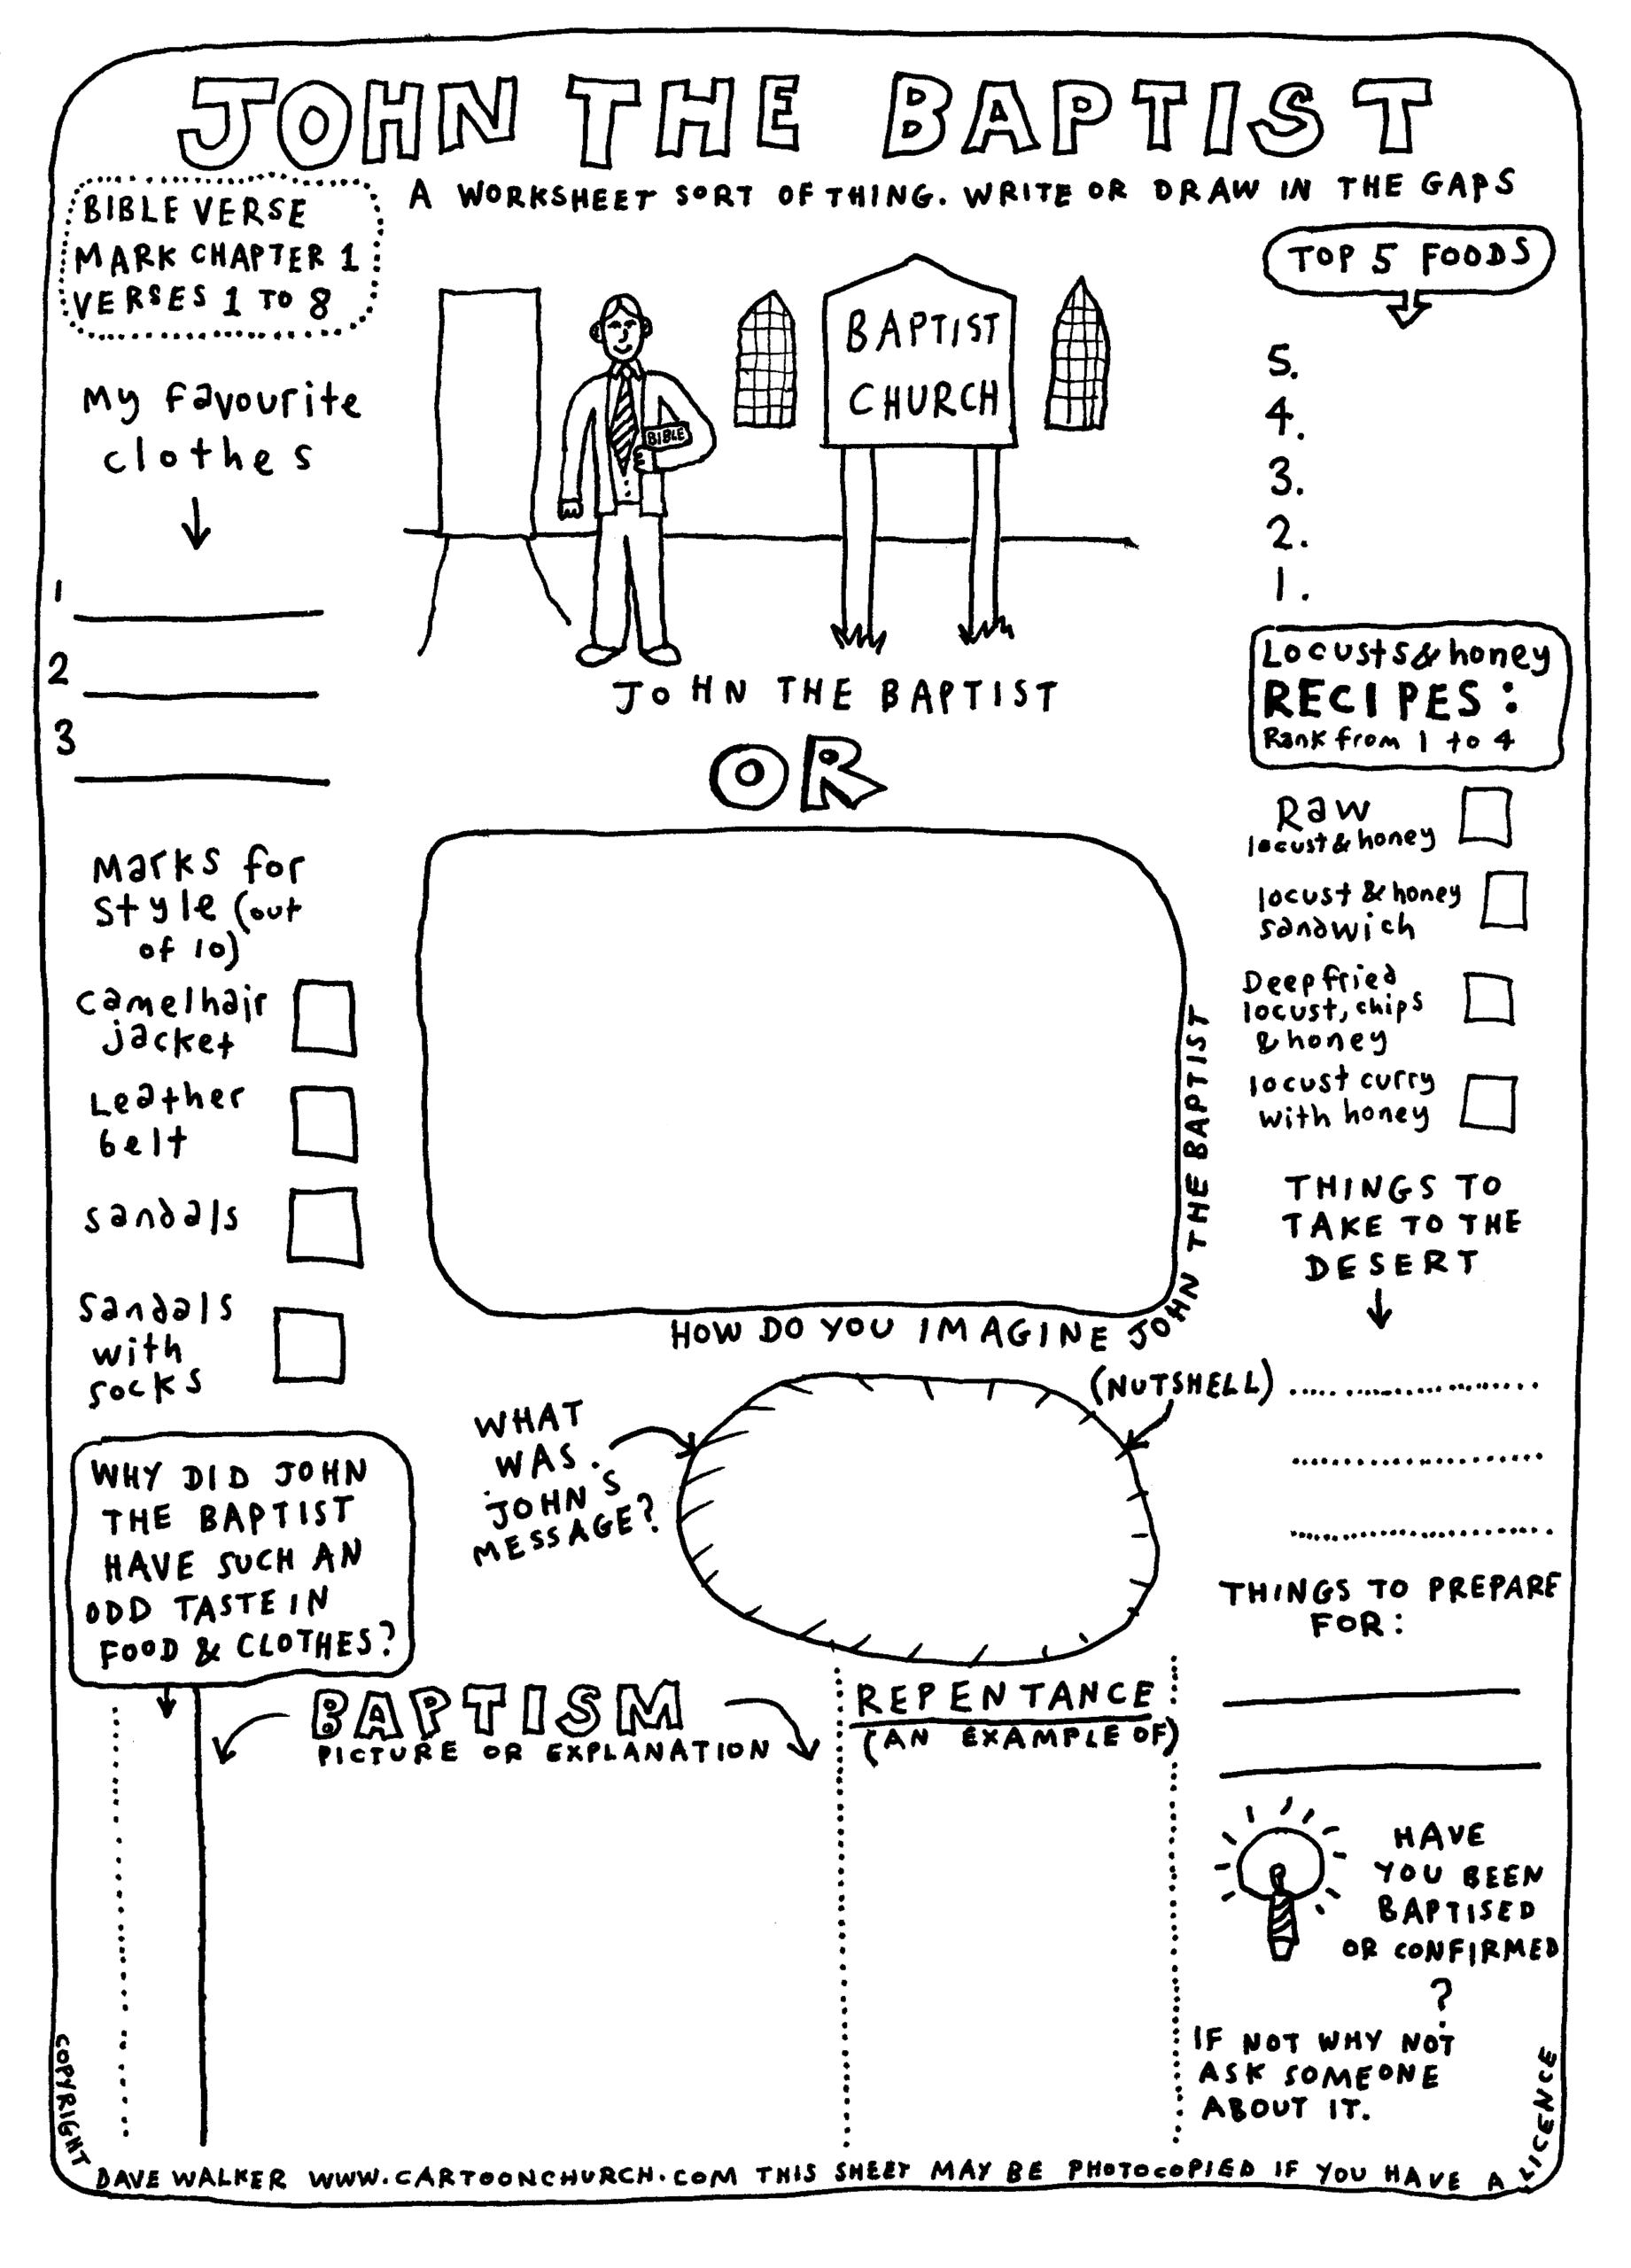 JOHN THE BAPTIST
A WORKSHEET SORT OF THING. WRITE OR DRAW IN THE GAPS
BIBLE VERSE
MARK CHAPTER 1
VERSES 1 TO 8
My favourite
clothes
1
2
3
Marks for
style (out
of 10)
camelhair
jacket
Leather
belt
sandals
Sandals
with
socks
WHY DID JOHN
THE BAPTIST
HAVE SUCH AN
ODD TASTE IN
FOOD & CLOTHES?
BIBLE
BAPTIST
CHURCH
JOHN THE BAPTIST
OR
HOW DO YOU IMAGINE JOHN THE BAPTIST
WHAT
WAS
JOHN'S
MESSAGE?
(NUTSHELL)
BAPTISM
PICTURE OR EXPLANATION
REPENTANCE
(AN EXAMPLE OF)
TOP 5 FOODS
5.
4.
3.
2.
1.
Locusts & honey
RECIPES:
Rank from 1 to 4
Raw
locust & honey
locust & honey
sandwich
Deep fried
locust, chips
& honey
locust curry
with honey
THINGS TO
TAKE TO THE
DESERT
THINGS TO PREPARE
FOR:
HAVE
YOU BEEN
BAPTISED
OR CONFIRMED
?
IF NOT WHY NOT
ASK SOMEONE
ABOUT IT.
COPYRIGHT DAVE WALKER WWW.CARTOONCHURCH.COM THIS SHEET MAY BE PHOTOCOPIED IF YOU HAVE A LICENCE